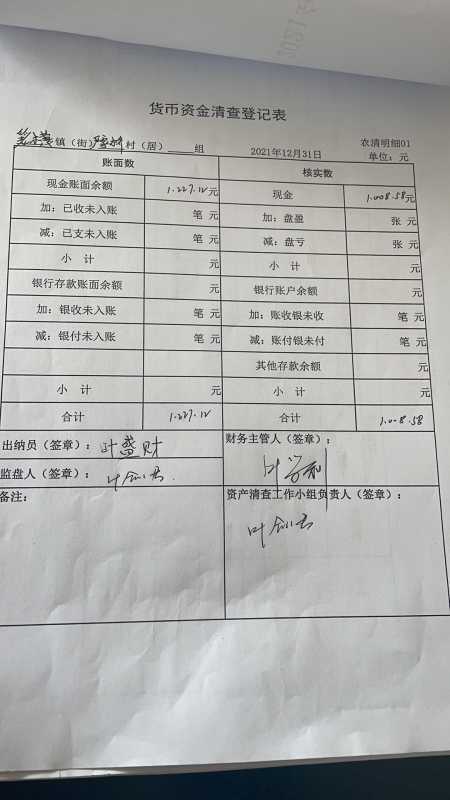 货币资金清查登记表
农清明细01
镇（街） 村（居）____组 2021年12月31日 单位：元
账面数 核实数
现金账面余额 1.227.12元 现金 1.008.58元
加：已收未入账 笔 元 加：盘盈 张 元
减：已支未入账 笔 元 减：盘亏 张 元
小 计 元 小 计 元
银行存款账面余额 元 银行账户余额 元
加：银收未入账 笔 元 加：账收银未收 笔 元
减：银付未入账 笔 元 减：账付银未付 笔 元
其他存款余额 元
小 计 元 小 计 元
合计 1.227.12 合计 1.008.58
出纳员（签章）：叶盛财 财务主管人（签章）：
监盘人（签章）：叶
备注： 资产清查工作小组负责人（签章）：
叶